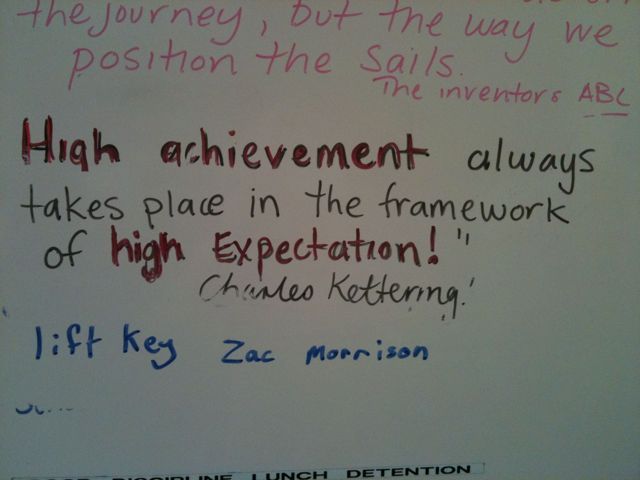 the journey, but the way we
position the Sails.
The inventors ABC
High achievement always
takes place in the framework
of high Expectation!"
Charles Kettering.'
lift key Zac Morrison
DISCIPLINE LUNCH DETENTION